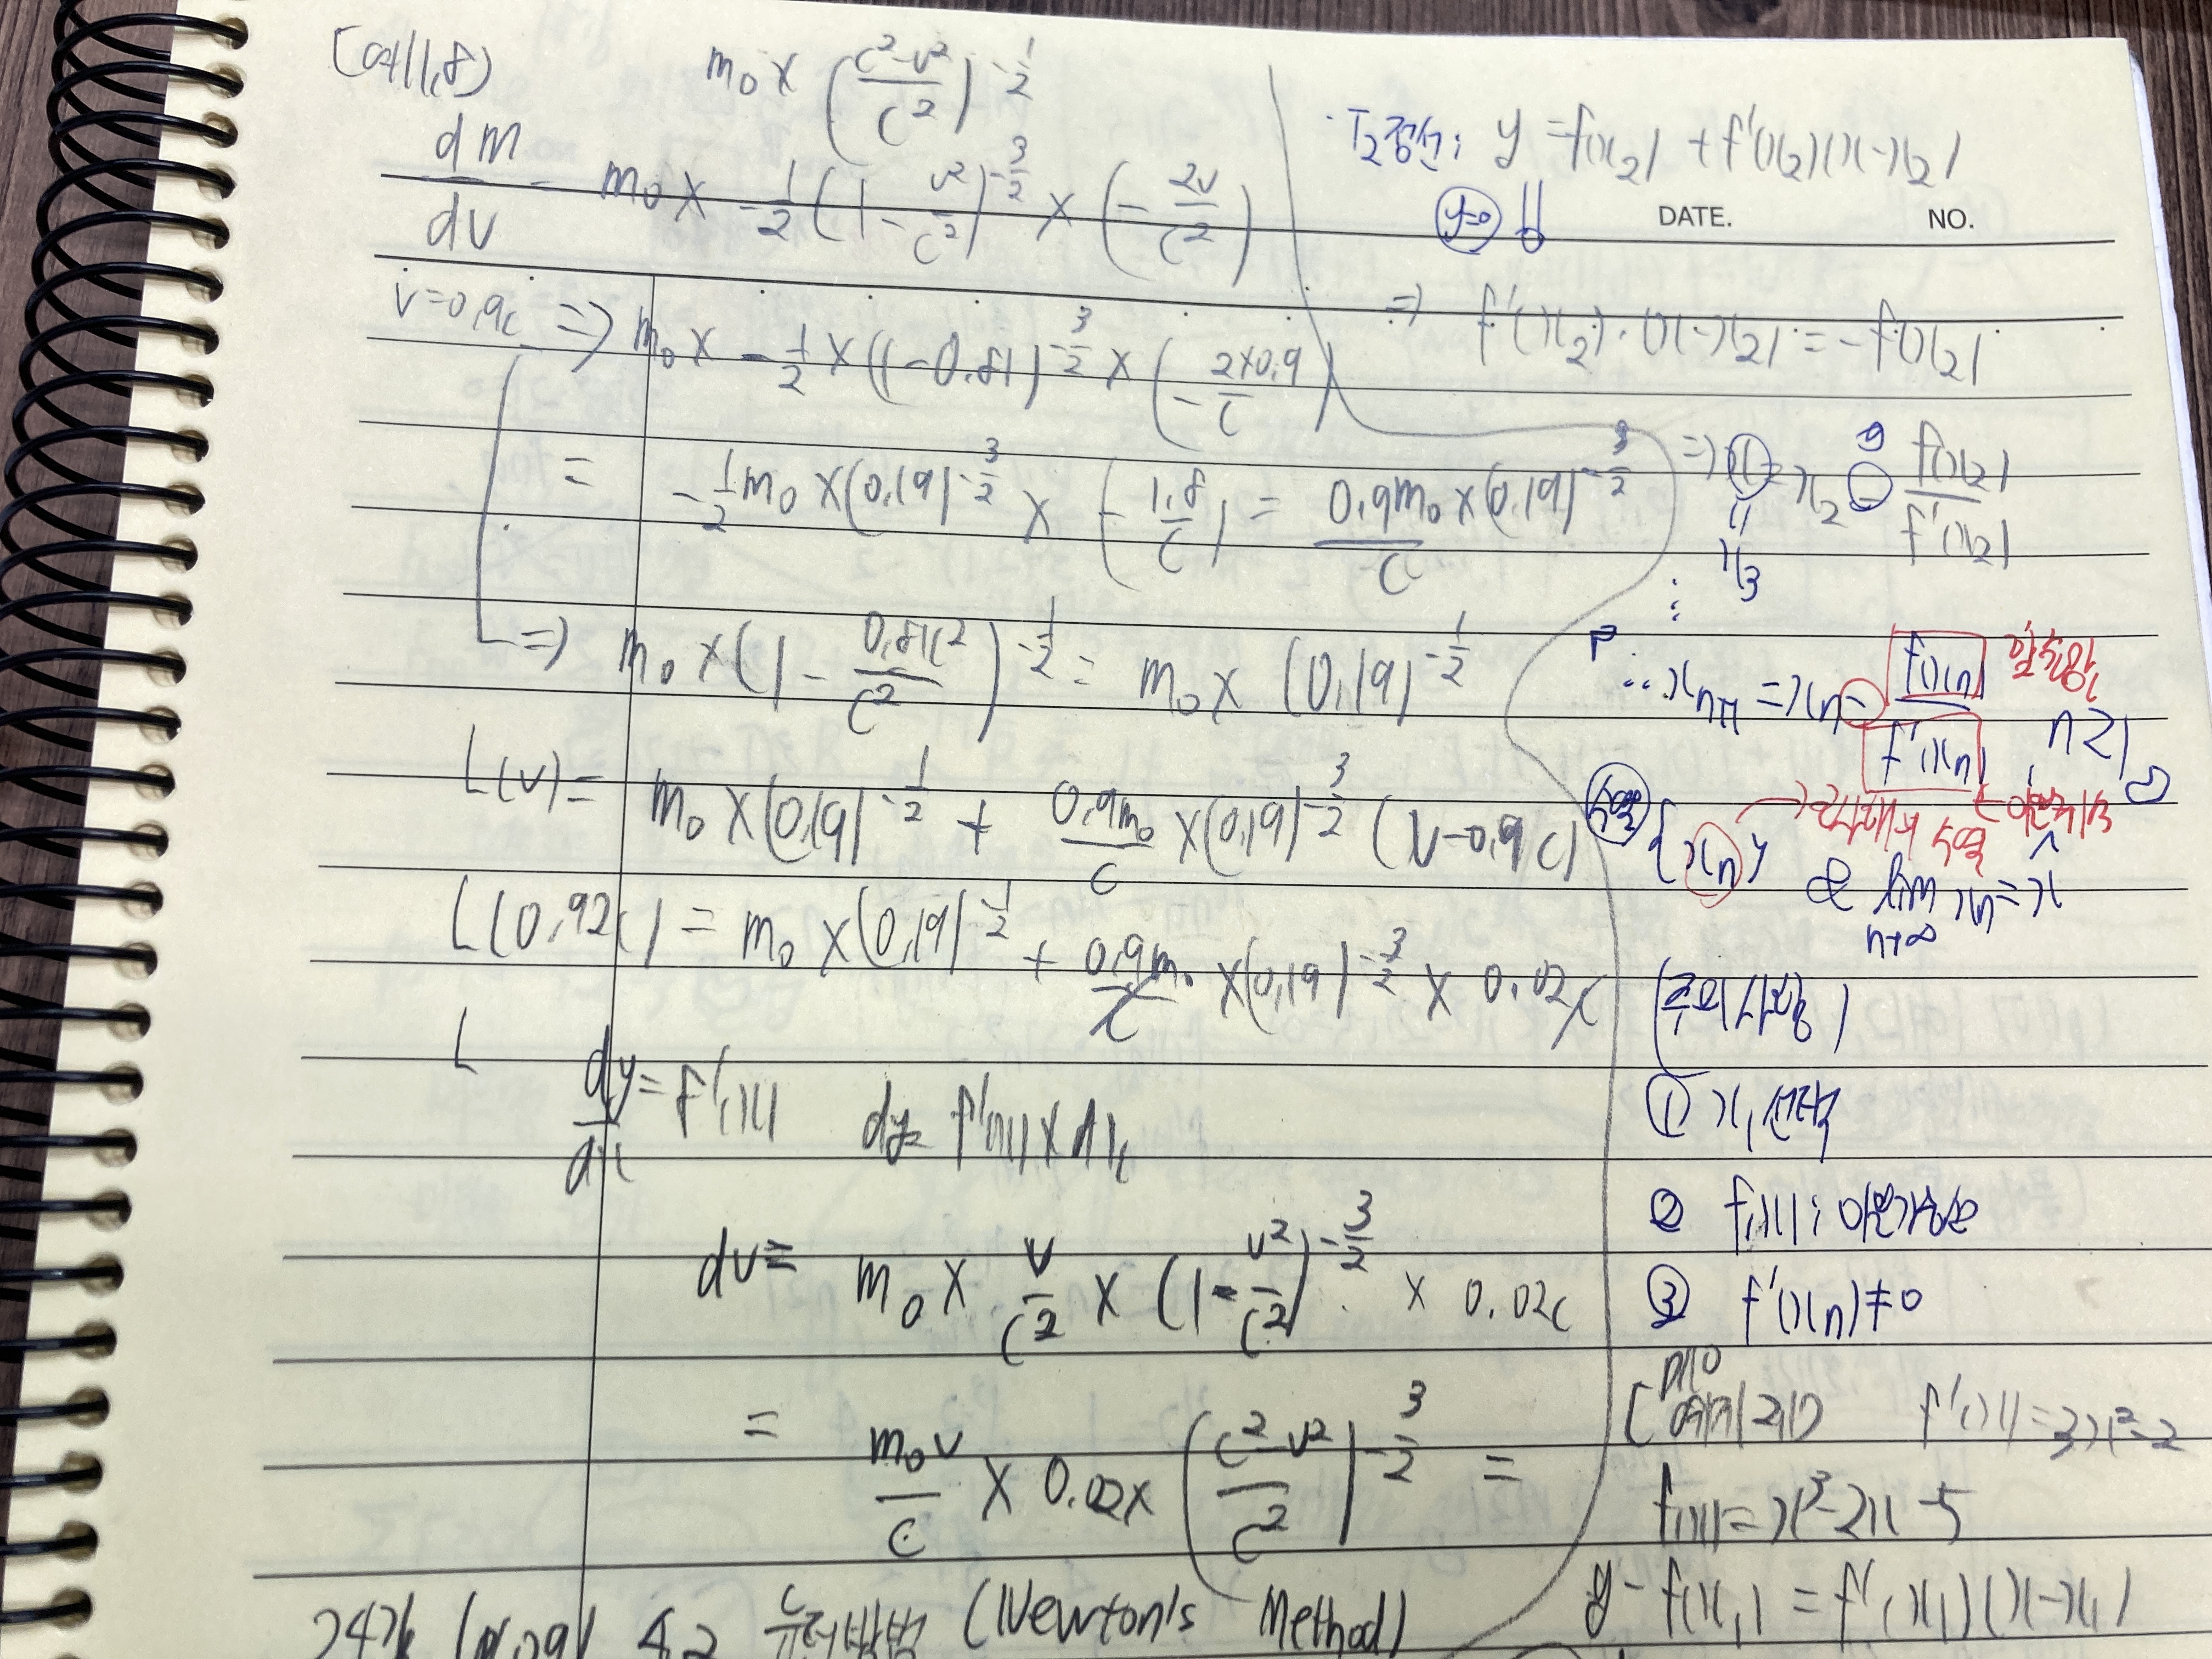 m₀ × ((c²-v²)/c²)^(-1/2)
dm/dv = m₀ × -1/2 (1 - v²/c²)^(-3/2) × (-2v/c²)
v=0.9c ⇒ m₀ × -1/2 × (1-0.81)^(-3/2) × (-(2×0.9)/c)
= -1/2 m₀ × (0.19)^(-3/2) × (-1.8/c) = 0.9m₀/c × (0.19)^(-3/2)
⇒ m₀ × (1 - 0.81c²/c²)^(-1/2) = m₀ × (0.19)^(-1/2)
L(v) = m₀ × (0.19)^(-1/2) + 0.9m₀/c × (0.19)^(-3/2) (v-0.9c)
L(0.92c) = m₀ × (0.19)^(-1/2) + 0.9m₀/c × (0.19)^(-3/2) × 0.02c
L
dy/dx = f'(x) dy = f'(x) × dx
dv = m₀ × v/c² × (1 - v²/c²)^(-3/2) × 0.02c
= m₀v/c × 0.02 × ((c²-v²)/c²)^(-3/2) =
4.2 뉴턴방법 (Newton's Method)
T₂접선: y = f(x₂) + f'(x₂)(x-x₂)
DATE. NO.
y=0
⇒ f'(x₂)·(x-x₂) = -f(x₂)
⇒ x = x₂ - f(x₂)/f'(x₂)
x₃
∴ xₙ₊₁ = xₙ - f(xₙ)/f'(xₙ) n≥1
수열 {xₙ} & lim n→∞ xₙ = x
① x₁ 선택
② f(x): 미분가능
③ f'(xₙ) ≠ 0
f'(x) = 3x²-2
f(x) = x³-2x-5
y - f(x₁) = f'(x₁)(x-x₁)